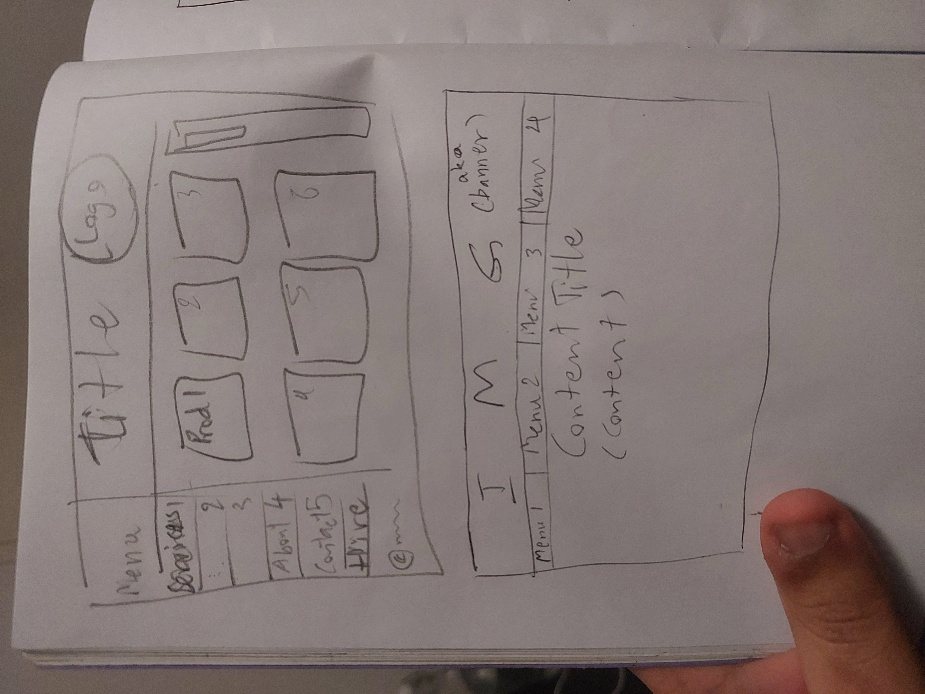 Menu
Title
Logo
Services 1
2
3
About 4
Contact 5
Hire
Prod 1
2
3
4
5
6
I M G (aka banner)
Menu 1 Menu 2 Menu 3 Menu 4
Content Title
(Content)